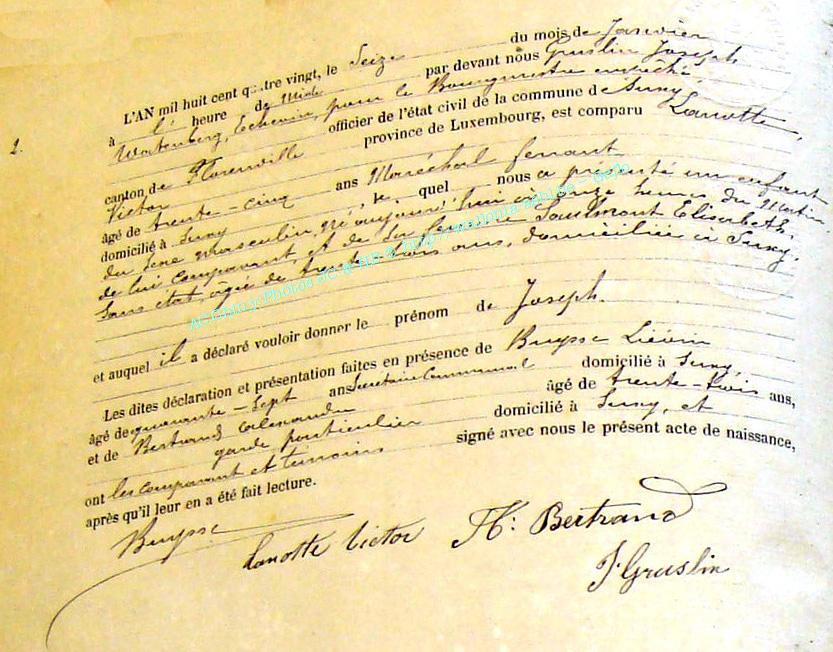 2.
L'AN mil huit cent quatre vingt, le Seize du mois de Janvier
à l' heure de Midi par devant nous Gruslin Joseph
Echevin, pour le Bourgmestre empêché,
officier de l'état civil de la commune de Suxy,
canton de Florenville province de Luxembourg, est comparu Lanotte,
Victor
âgé de trente-cinq ans Maréchal ferrant
domicilié à Suxy, le quel nous a présenté un enfant
du sexe masculin, né aujourd'hui à onze heures du Matin,
de lui comparant, et de Sa femme Saulmont Elisabeth,
Sans état, âgée de trente trois ans, domiciliée à Suxy,
et auquel il a déclaré vouloir donner le prénom de Joseph.
Les dites déclaration et présentation faites en présence de Buysse Liévin
âgé de quarante-Sept ans Secrétaire Communal domicilié à Suxy,
et de Bertrand Alexandre âgé de trente-trois ans,
garde particulier domicilié à Suxy, et
ont les comparant et témoins signé avec nous le présent acte de naissance,
après qu'il leur en a été fait lecture.
Buysse Lanotte Victor Bertrand
J. Gruslin